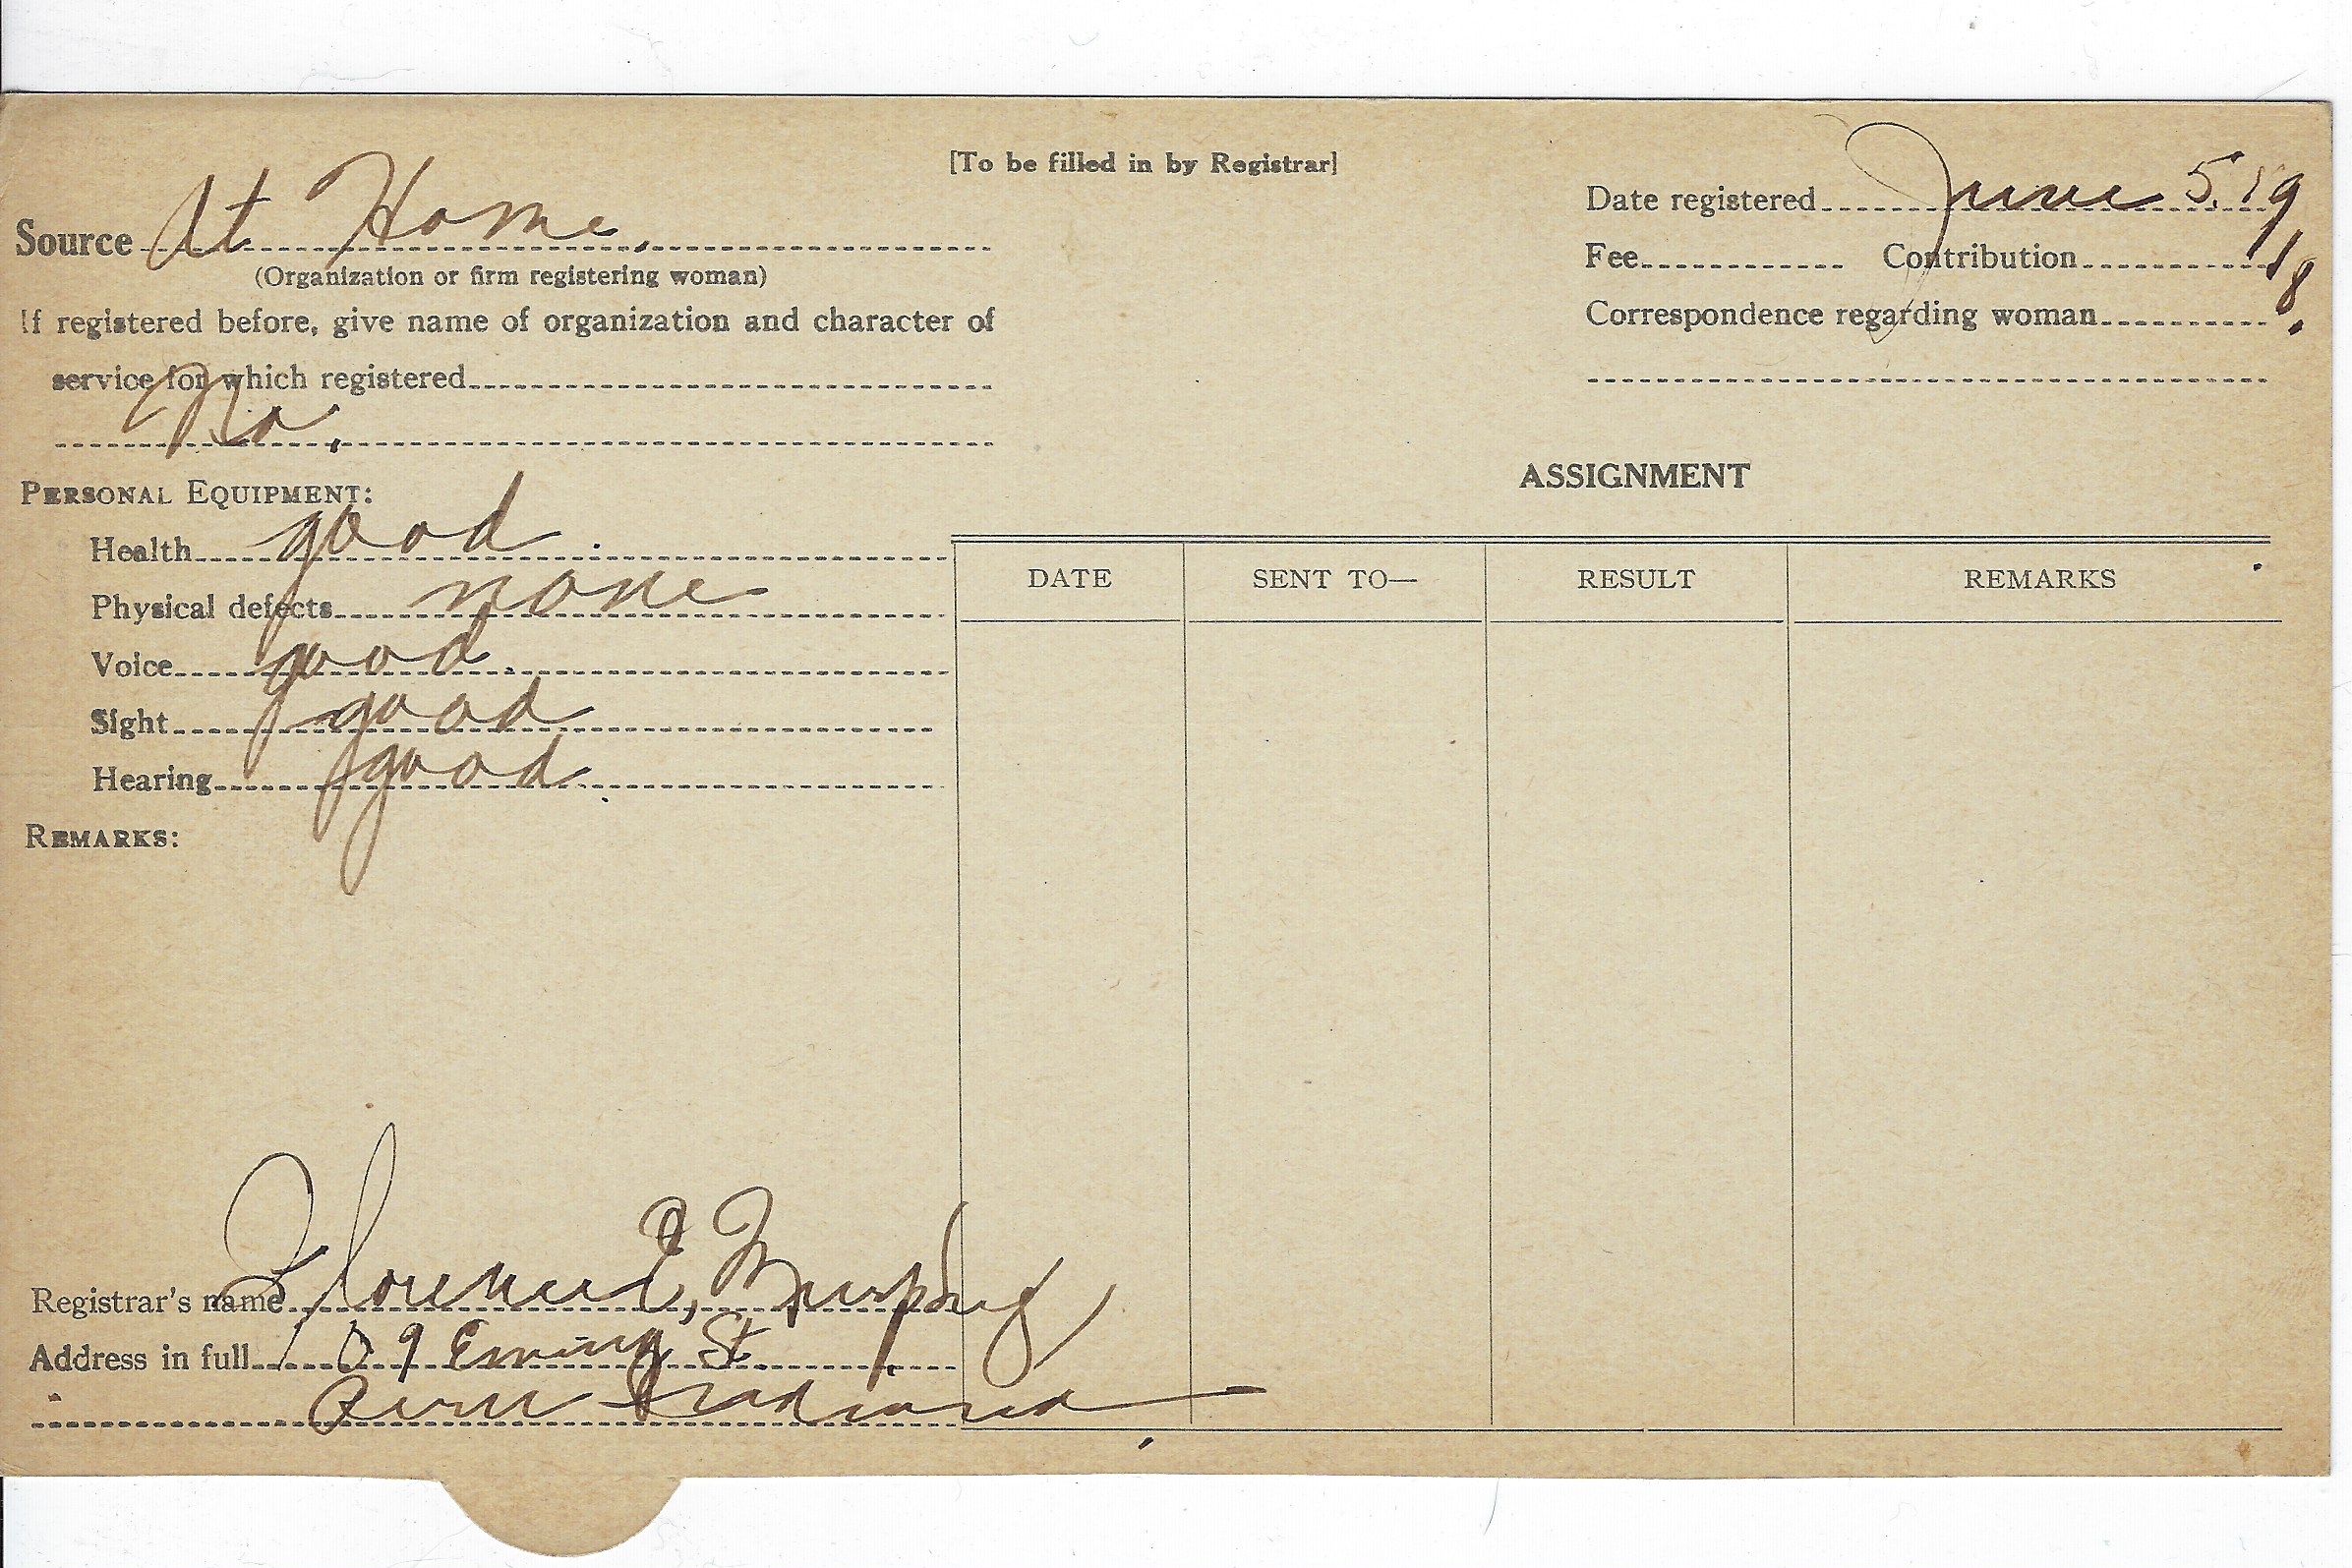 [To be filled in by Registrar]
Source At Home.
(Organization or firm registering woman)
If registered before, give name of organization and character of
service for which registered
No.
Date registered June 5, 1918.
Fee Contribution
Correspondence regarding woman
PERSONAL EQUIPMENT:
Health good.
Physical defects none
Voice good.
Sight good
Hearing good.
REMARKS:
ASSIGNMENT
DATE SENT TO— RESULT REMARKS
Registrar's name Florence E, Murphy
Address in full 109 Ewing St.
Peru Indiana.